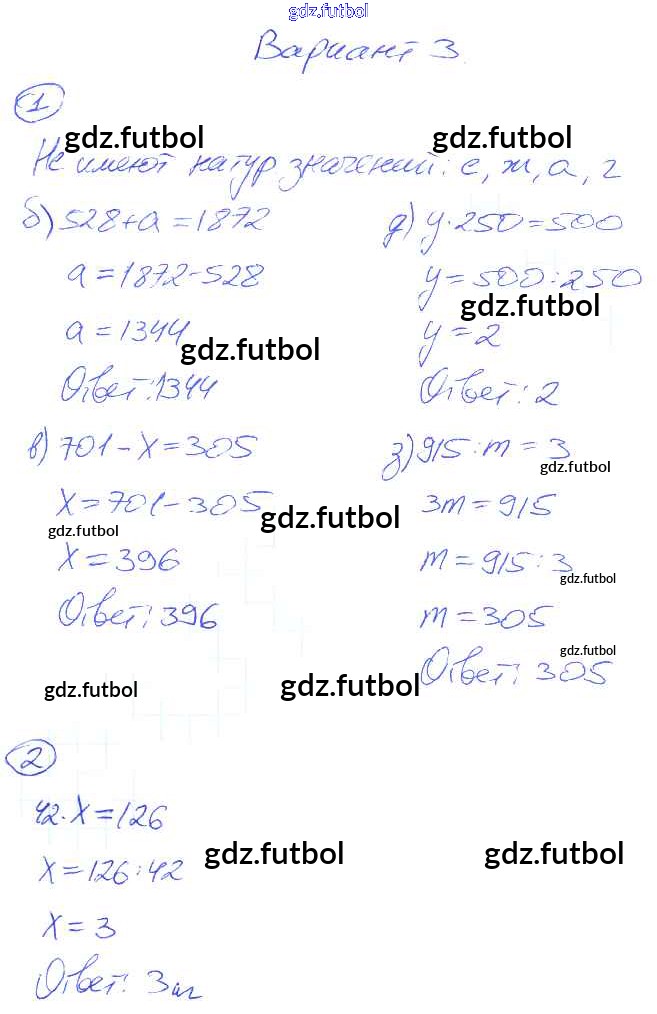 gdz.futbol
Вариант 3
1
gdz.futbol gdz.futbol
Не имеют натур значений: е, ж, а, г
б) 528+a=1872
a=1872-528
a=1344
gdz.futbol
Ответ: 1344
д) y·250=500
y=500:250
gdz.futbol
y=2
Ответ: 2
в) 701-x=305
x=701-305
gdz.futbol
gdz.futbol
x=396
Ответ: 396
з) 915:m=3
gdz.futbol
3m=915
m=915:3
gdz.futbol
m=305
gdz.futbol
Ответ: 305
gdz.futbol gdz.futbol
2
42·x=126
gdz.futbol gdz.futbol
x=126:42
x=3
Ответ: 3 кг